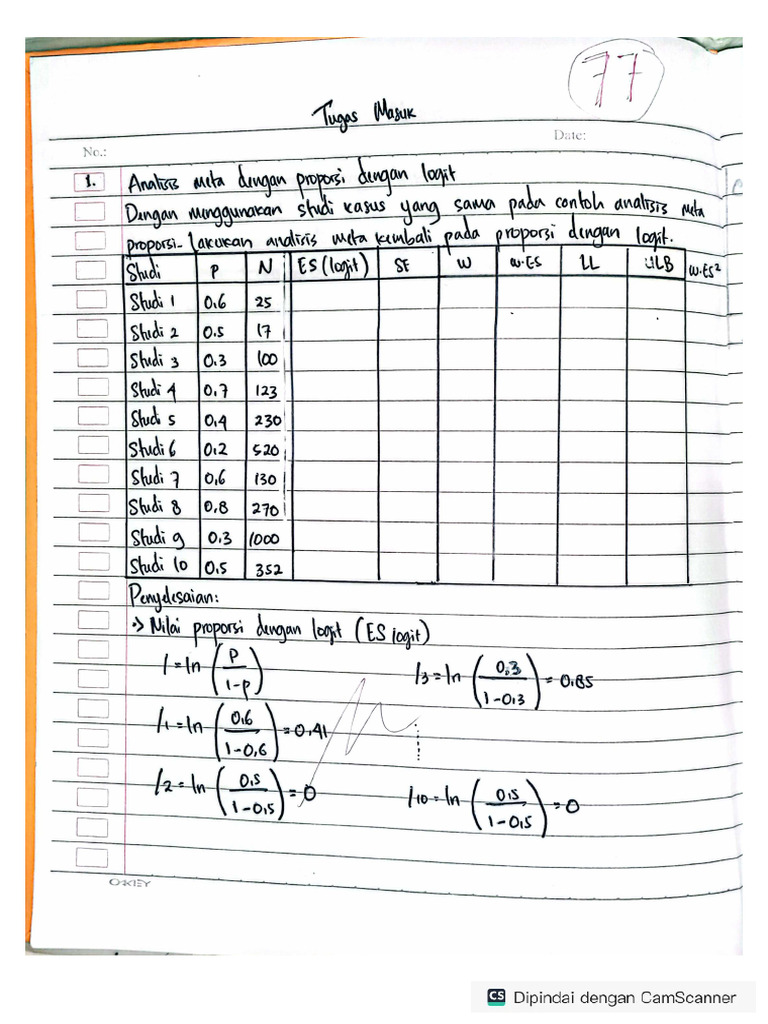 77
Tugas Masuk
Date:
No.:
1. Analisis meta dengan proporsi dengan logit
Dengan menggunakan studi kasus yang sama pada contoh analisis meta
proporsi. Lakukan analisis meta kembali pada proporsi dengan logit.
Studi P N ES (logit) SE W W.ES LL ULB W.ES²
Studi 1 0.6 25
Studi 2 0.5 17
Studi 3 0.3 100
Studi 4 0.7 123
Studi 5 0,4 230
Studi 6 0.2 520
Studi 7 0,6 130
Studi 8 0.8 270
Studi 9 0.3 1000
Studi 10 0.5 352
Penyelesaian:
-> Nilai proporsi dengan logit (ES logit)
l = ln (P / 1-P)
l3 = ln (0.3 / 1-0.3) = 0.85
l1 = ln (0.6 / 1-0,6) = 0,41
l2 = ln (0.5 / 1-0.5) = 0
l10 = ln (0.5 / 1-0.5) = 0
OKEY
CS Dipindai dengan CamScanner